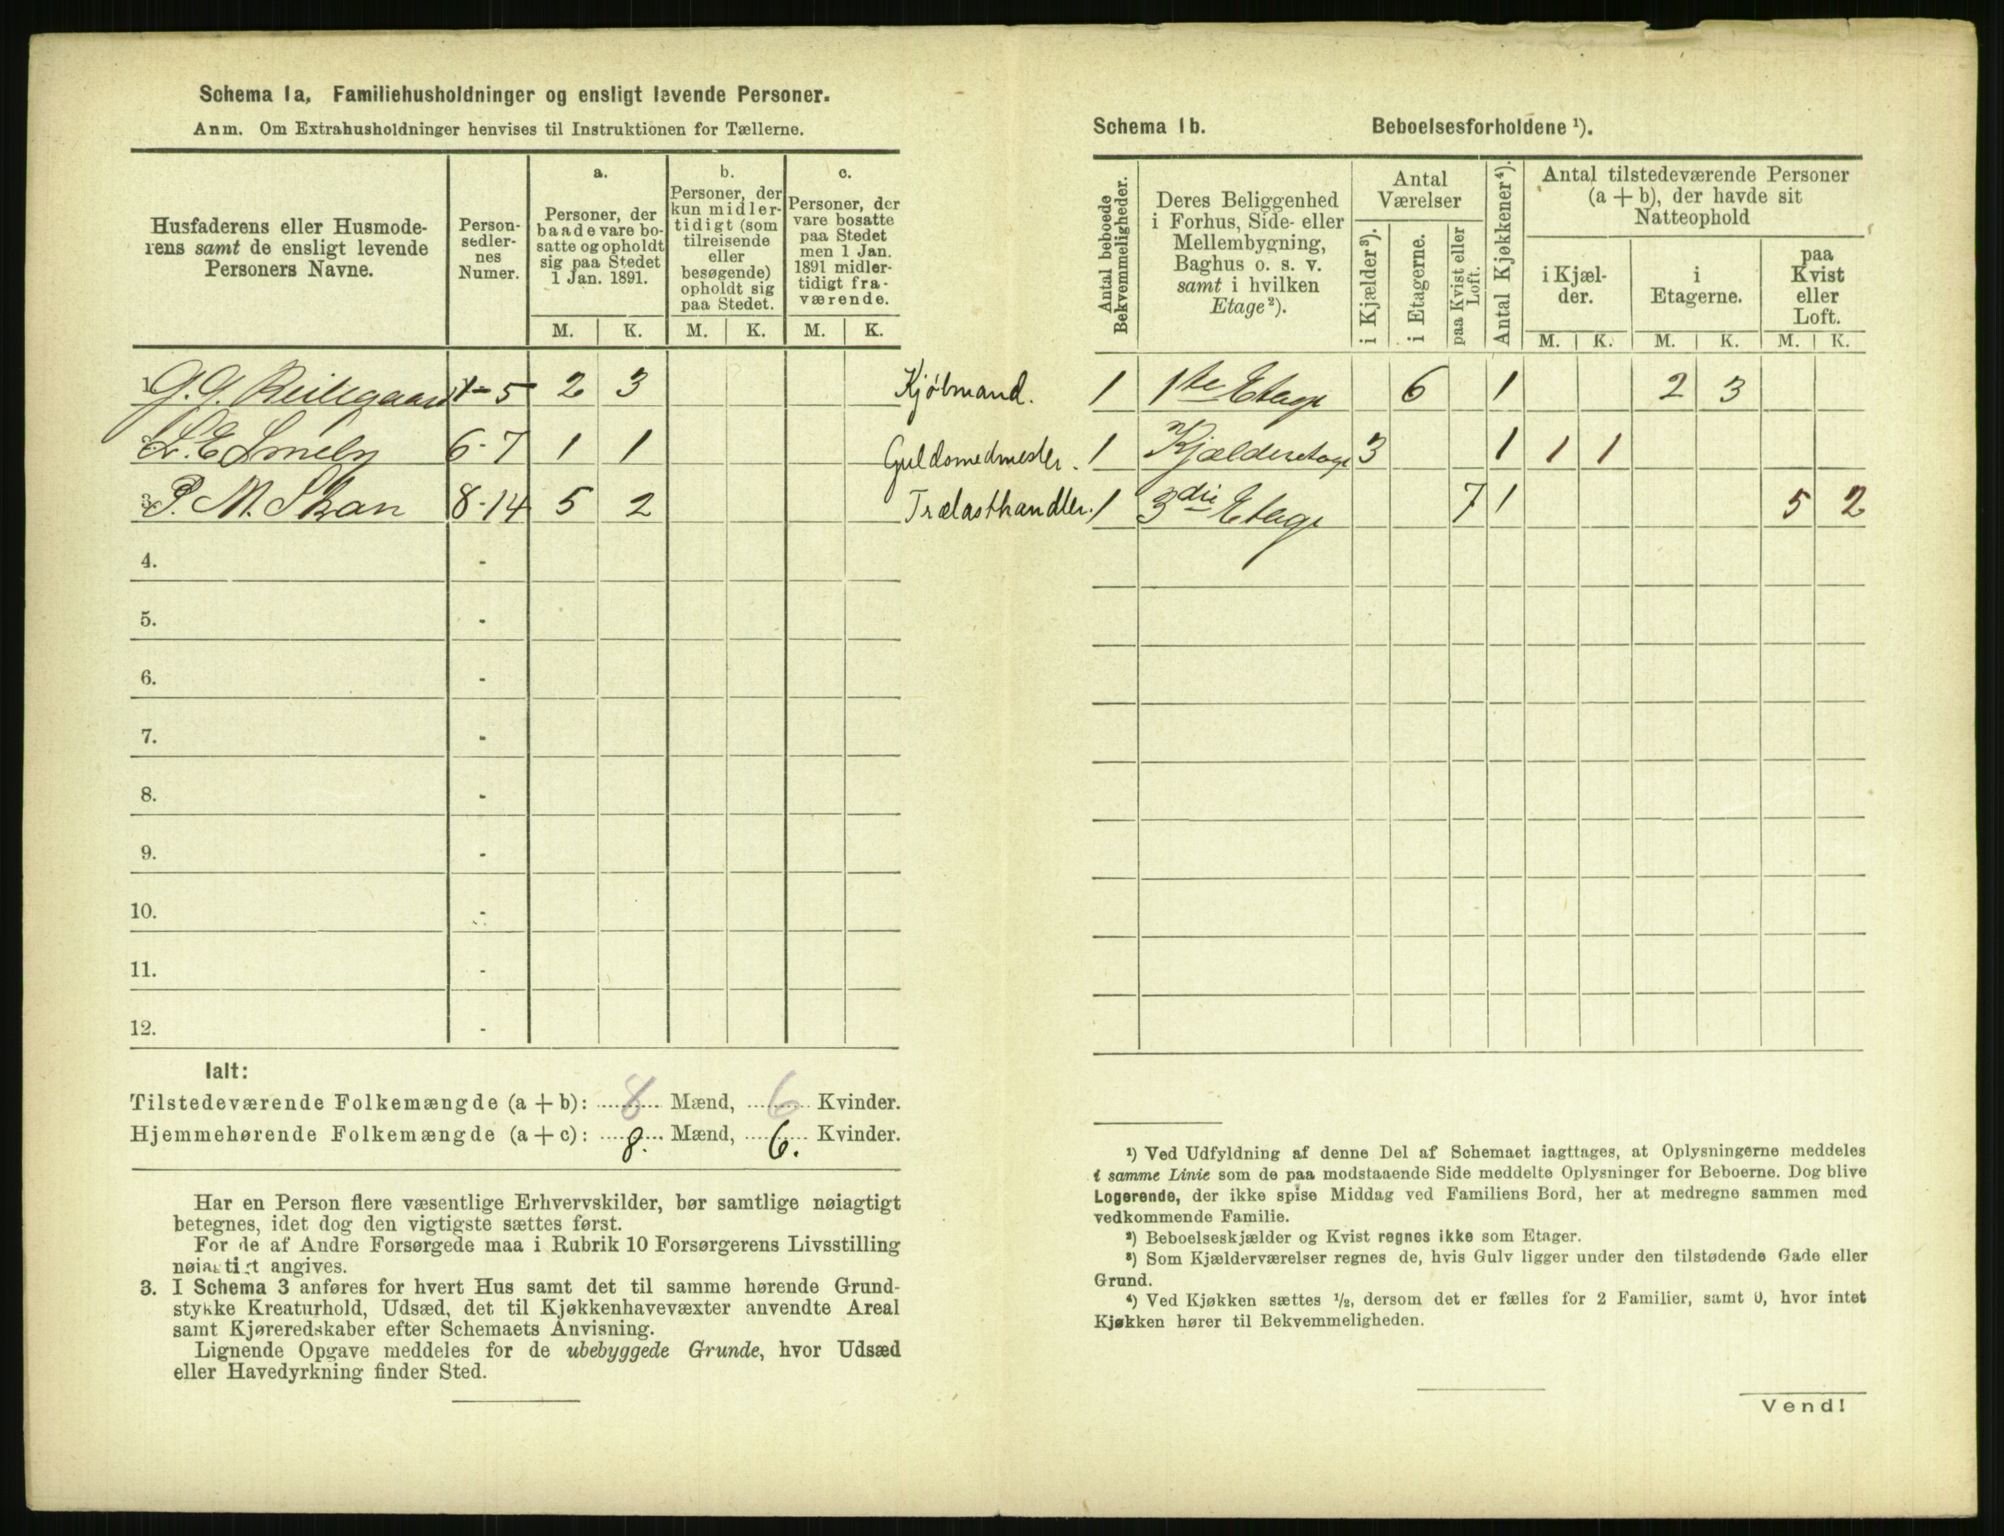 Schema 1a, Familiehusholdninger og ensligt levende Personer.
Anm. Om Extrahusholdninger henvises til Instruktionen for Tællerne.
Husfaderens eller Husmoderens samt de ensligt levende Personers Navne.
Personsedlernes Numer.
a.
Personer, der baade vare bosatte og opholdt sig paa Stedet 1 Jan. 1891.
b.
Personer, der kun midlertidigt (som tilreisende eller besøgende) opholdt sig paa Stedet.
c.
Personer, der vare bosatte paa Stedet men 1 Jan. 1891 midlertidigt fraværende.
M. K. M. K. M. K.
1. G. G. 1-5 2 3 Kjøbmand.
2. L. E. Smeby 6-7 1 1 Guldsmedmester.
3. P. M. Skan 8-14 5 2 Trælasthandler.
4. -
5. -
6. -
7. -
8. -
9. -
10. -
11. -
12. -
Ialt:
Tilstedeværende Folkemængde (a + b): 8 Mænd, 6 Kvinder.
Hjemmehørende Folkemængde (a + c): 8. Mænd, 6. Kvinder.
Har en Person flere væsentlige Erhvervskilder, bør samtlige nøiagtigt
betegnes, idet dog den vigtigste sættes først.
For de af Andre Forsørgede maa i Rubrik 10 Forsørgerens Livsstilling
nøiagtigt angives.
3. I Schema 3 anføres for hvert Hus samt det til samme hørende Grund-
stykke Kreaturhold, Udsæd, det til Kjøkkenhavevæxter anvendte Areal
samt Kjøreredskaber efter Schemaets Anvisning.
Lignende Opgave meddeles for de ubebyggede Grunde, hvor Udsæd
eller Havedyrkning finder Sted.
Schema 1b. Beboelsesforholdene ¹).
Antal beboede Bekvemmeligheder.
Deres Beliggenhed i Forhus, Side- eller Mellembygning, Baghus o. s. v. samt i hvilken Etage²).
Antal Værelser
i Kjælder³).
i Etagerne.
paa Kvist eller Loft.
Antal Kjøkkener⁴).
Antal tilstedeværende Personer (a + b), der havde sit Natteophold
i Kjælder.
i Etagerne.
paa Kvist eller Loft.
M. K. M. K. M. K.
1 1te Etage 6 1 2 3
1 Kjælderetage 3 1 1 1
1 3die Etage 7 1 5 2
¹) Ved Udfyldning af denne Del af Schemaet iagttages, at Oplysningerne meddeles
i samme Linie som de paa modstaaende Side meddelte Oplysninger for Beboerne. Dog blive
Logerende, der ikke spise Middag ved Familiens Bord, her at medregne sammen med
vedkommende Familie.
²) Beboelseskjælder og Kvist regnes ikke som Etager.
³) Som Kjælderværelser regnes de, hvis Gulv ligger under den tilstødende Gade eller
Grund.
⁴) Ved Kjøkken sættes ½, dersom det er fælles for 2 Familier, samt 0, hvor intet
Kjøkken hører til Bekvemmeligheden.
Vend!